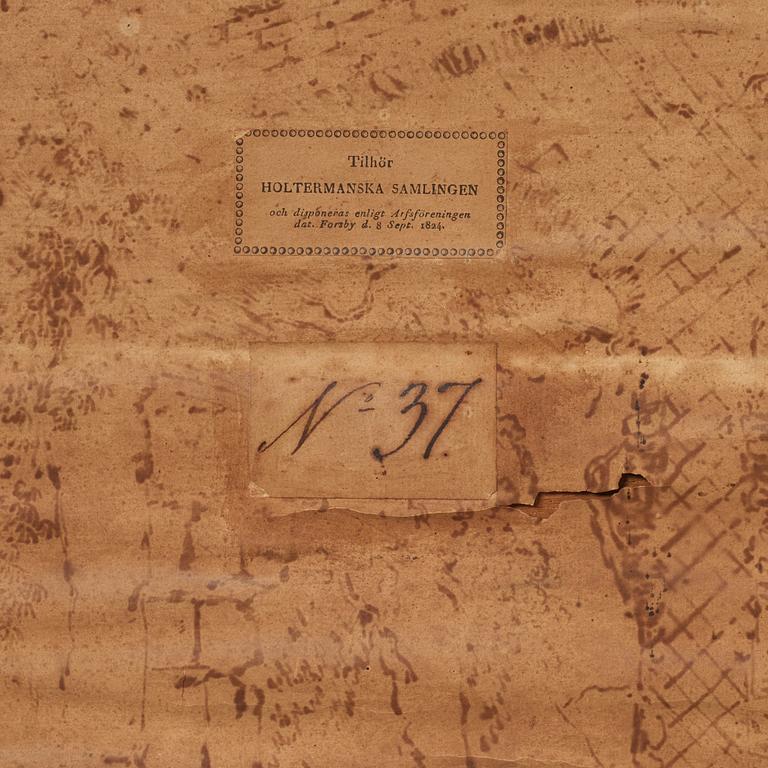 Tilhör
HOLTERMANSKA SAMLINGEN
och disponeras enligt Arfsföreningen
dat. Forsby d. 8 Sept. 1824.
No 37